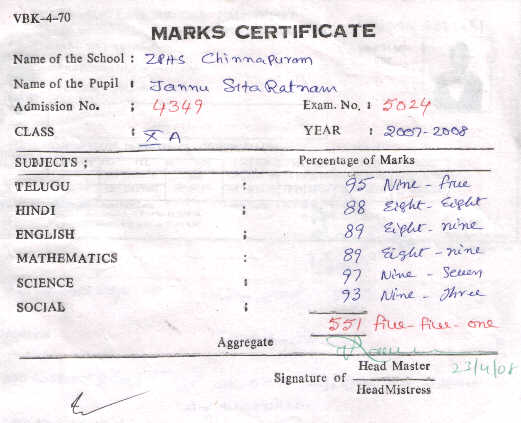 VBK-4-70
MARKS CERTIFICATE
Name of the School : ZPHS Chinnapuram
Name of the Pupil : Jannu Sita Ratnam
Admission No. : 4349 Exam. No. : 5024
CLASS : X A YEAR : 2007-2008
SUBJECTS ; Percentage of Marks
TELUGU : 95 Nine - five
HINDI : 88 Eight - Eight
ENGLISH : 89 Eight - nine
MATHEMATICS : 89 Eight - nine
SCIENCE : 97 Nine - Seven
SOCIAL : 93 Nine - Three
551 five - five - one
Aggregate
Signature of Head Master 23/4/08
Head Mistress